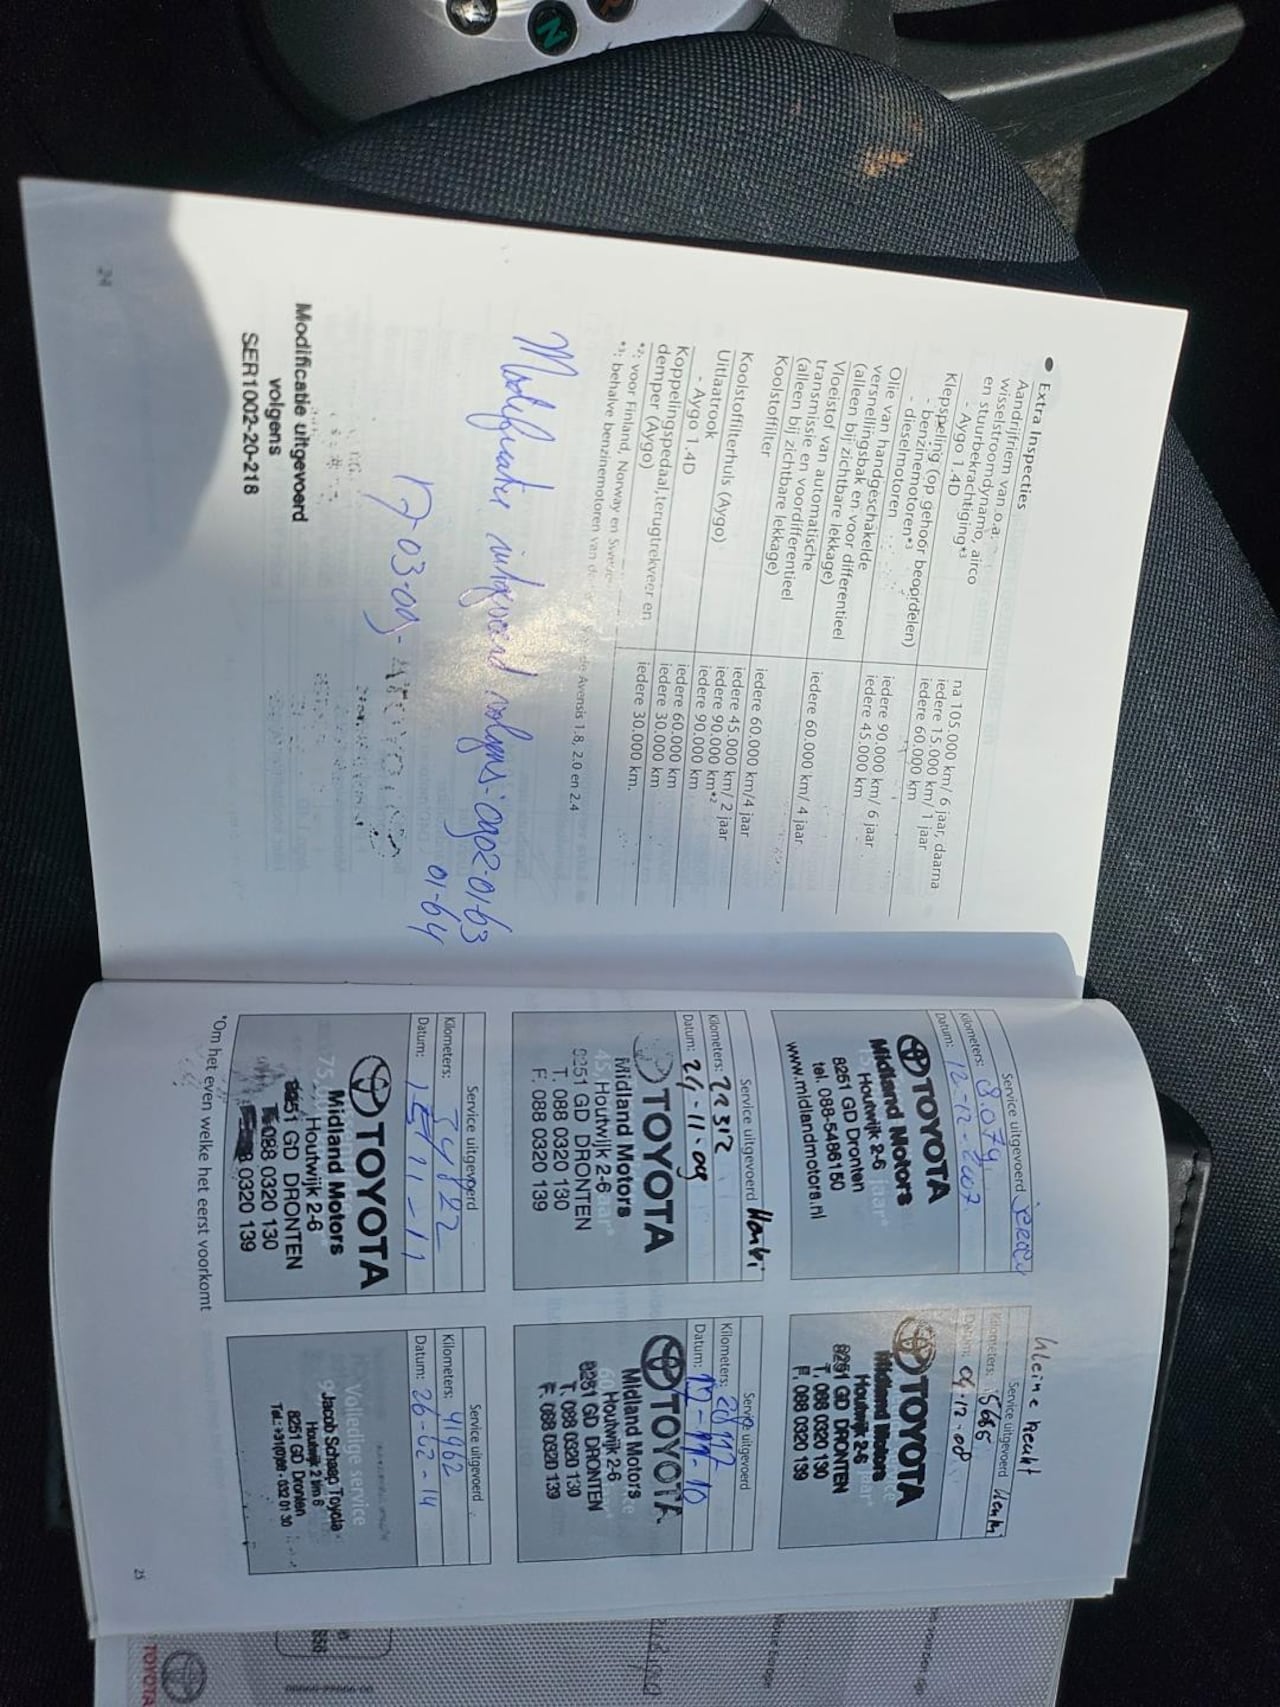 ● Extra Inspecties
Aandrijfriem van o.a.
wisselstroomdynamo, airco
en stuurbekrachtiging*³
- Aygo 1.4D
na 105.000 km/ 6 jaar, daarna
iedere 15.000 km/ 1 jaar
Klepspeling (op gehoor beoordelen)
- benzinemotoren*³
iedere 60.000 km
- dieselmotoren
Olie van handgeschakelde
versnellingsbak en voor differentieel
(alleen bij zichtbare lekkage)
iedere 90.000 km/ 6 jaar
iedere 45.000 km
Vloeistof van automatische
transmissie en voordifferentieel
(alleen bij zichtbare lekkage)
iedere 60.000 km/ 4 jaar
Koolstoffilter
iedere 60.000 km/4 jaar
Koolstoffilterhuis (Aygo)
iedere 45.000 km/ 2 jaar
Uitlaatrook
iedere 90.000 km*²
- Aygo 1.4D
iedere 90.000 km
iedere 60.000 km
Koppelingspedaal,terugtrekveer en
demper (Aygo)
iedere 30.000 km
iedere 30.000 km.
*²: voor Finland, Norway en
*³: behalve benzinemotoren van de Avensis 1.8, 2.0 en 2.4
Modificatie uitgevoerd volgens: 0902-01-63
01-64
17-03-09-
Modificatie uitgevoerd
volgens
SER1002-20-218
24
Service uitgevoerd
Kilometers: 8.079
Datum: 12-12-2007
TOYOTA
Midland Motors
Houtwijk 2-6
8251 GD Dronten
tel. 088-5486150
www.midlandmotors.nl
kleine beurt
Service uitgevoerd
Kilometers: 15666
Datum: 09-12-08
TOYOTA
Midland Motors
Houtwijk 2-6
8251 GD DRONTEN
T. 088 0320 130
F. 088 0320 139
Service uitgevoerd
Kilometers: 22312
Datum: 24-11-09
TOYOTA
Midland Motors
Houtwijk 2-6
8251 GD DRONTEN
T. 088 0320 130
F. 088 0320 139
Service uitgevoerd
Kilometers: 28117
Datum: 17-11-10
TOYOTA
Midland Motors
Houtwijk 2-6
8251 GD DRONTEN
T. 088 0320 130
F. 088 0320 139
Service uitgevoerd
Kilometers: 34822
Datum: 11-11
TOYOTA
Midland Motors
Houtwijk 2-6
8251 GD DRONTEN
T. 088 0320 130
0320 139
Service uitgevoerd
Kilometers: 41962
Datum: 26-02-14
Volledige service
Jacob Schaap Toyota
Houtwijk 2 t/m 6
8251 GD Dronten
*Om het even welke het eerst voorkomt
25
TOYOTA
N
R